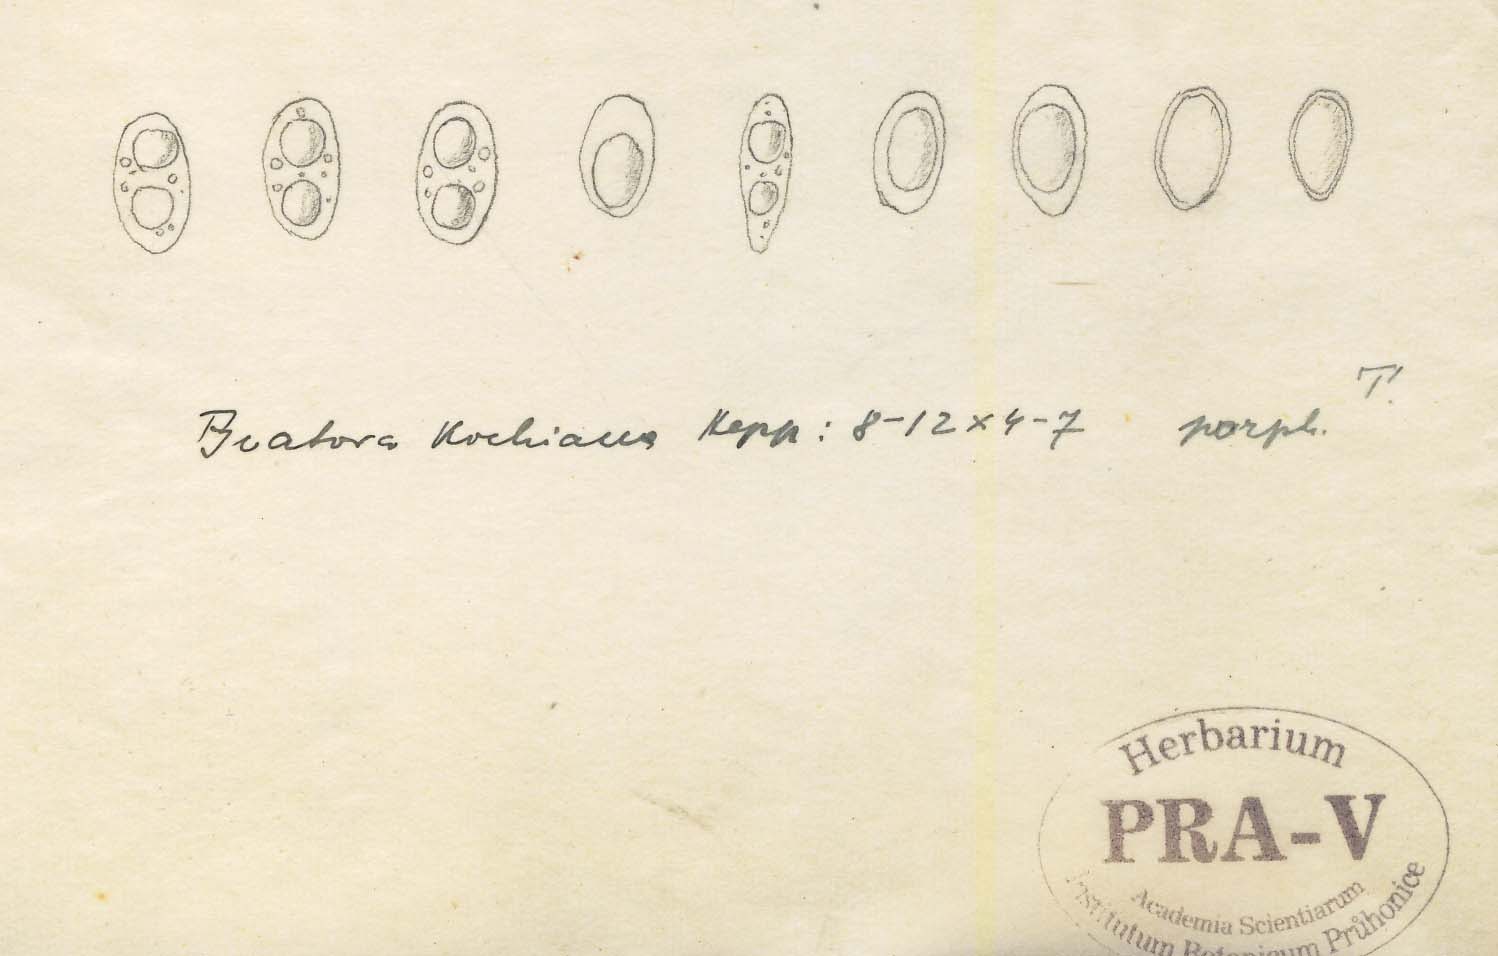 Biatora Kochiana Hepp: 8-12 x 4-7 porph. T!
Herbarium
PRA-V
Academia Scientiarum
Institutum Botanicum Průhonice